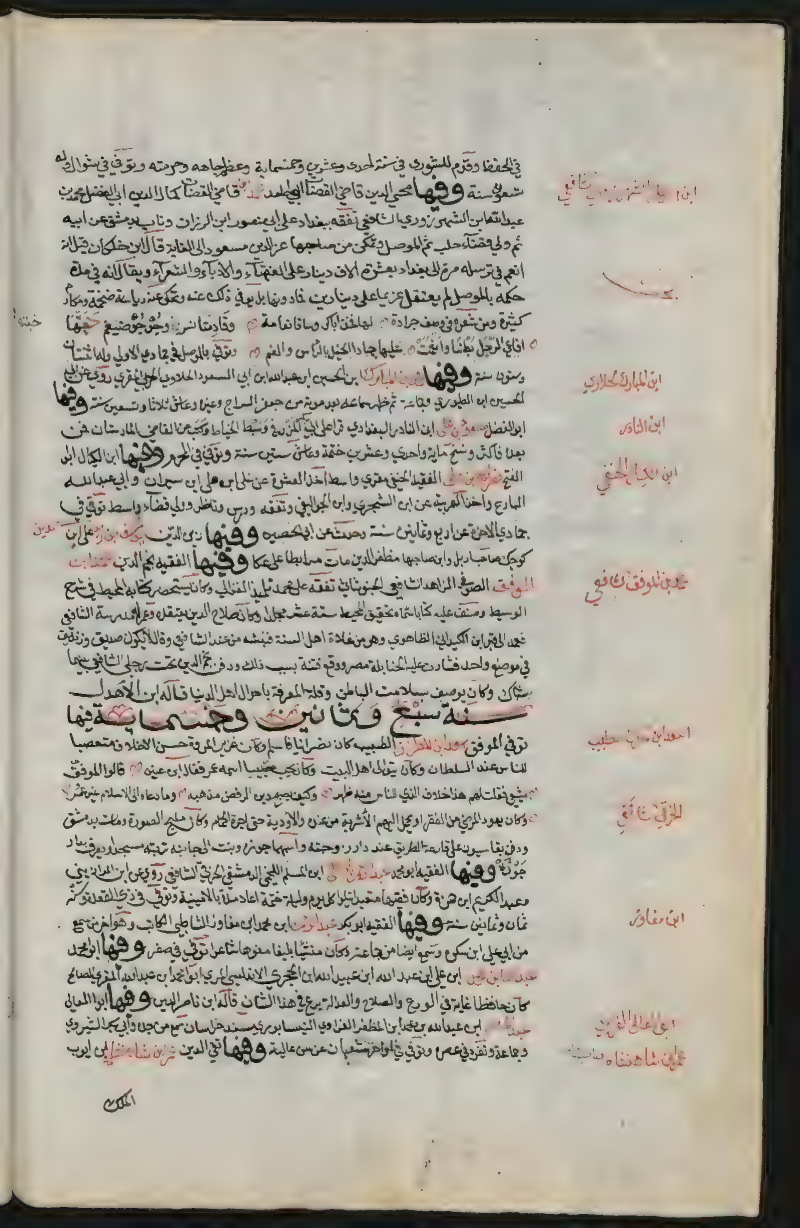 في الحفظ وقدم للشورى في سنة احدى وعشرين وخمسماية وعظم جاهه وحرمته وتوفي في شوال وله
تسعون سنة وفيها محيي الدين قاضي القضاة ابو حامد محمد بن قاضي القضاة كمال الدين ابي الفضل محمد بن
عبد الله ابن الشهرزوري الشافعي تفقه ببغداد على ابي منصور ابن الرزاز وناب بدمشق عن ابيه
ثم ولي قضاء حلب ثم الموصل وتمكن من صاحبها عز الدين مسعود الى الغاية قال ابن خلكان قيل انه
انعم في ترسله مرة الى بغداد بعشرة الاف دينار على الفقهاء والادباء والشعراء ويقال انه في مدة
حكمه بالموصل لم يعتقل غريما على دينارين فما دونها بل يوفي ذلك عنه ويحكى عنه رياسة ضخمة ومكارم
كثيرة ومن شعره في وصف جرادة لها فخذا بكر وساقا نعامة وقادمتا نسر وجؤجؤ ضيغم حبتها
افاعي الرمل بطنا وانعمت عليها جياد الخيل بالراس والفم وتوفي بالموصل في جمادى الاولى وله اثنتان
وستون سنة وفيها ابن المبارك ابن الحسين ابن عبد الله ابن ابي السعود الحلاوي الحربي المقري روى عن ابي
الحسين ابن الطيوري وجماعة ثم ظهر سماعه بعد موته من جعفر السراج وغيره وعاش ثلاثا وتسعين سنة وفيها
ابو الفضل مسعود بن علي ابن النادر البغدادي قرا على ابي بكر المزرفي وسبط الخياط وكتب عن القاضي المارستان فمن
بعده فاكثر ونسخ ماية واحدى وعشرين ختمة وعاش ستين سنة وتوفي في المحرم وفيها ابن الكيال ابو
الفتح نصر الله بن علي الفقيه الحنفي مقري واسط اخذ العشرة عن علي ابن علي ابن شيران وابي عبد الله
البارع واخذ العربية عن ابن الشجري وابن الجواليقي وتفقه ودرس وناظر وولي قضاء واسط توفي في
جمادى الاخرة عن اربع وثمانين سنة وحدث عن ابن الحصين وفيها زين الدين يوسف بن زين الدين علي ابن
كوجك صاحب اربل وابن صاحبها مظفر الدين مات مرابطا على عكا وفيها الفقيه نجم الدين محمد بن
الموفق الصوفي الزاهد الشافعي الخبوشاني تفقه على محمد تلميذ الغزالي وكان يستحضر كتابه المحيط في شرح
الوسيط وصنف عليه كتابا سماه تحقيق المحيط ستة عشر مجلدا وكان صلاح الدين يعتقده وعمر له مدرسة الشافعي
فعمد الى قبر ابن الكيزاني الظاهري وهو من غلاة اهل السنة فنبشه من عند الشافعي وقال لا يكون صديق وزنديق
في موضع واحد فثارت عليه الحنابلة بمصر ووقع فتنة بسبب ذلك ودفن نجم الدين تحت رجلي الشافعي بينهما
شباك وكان يوصف بسلامة الباطن وقلة المعرفة باحوال اهل الدنيا قاله ابن الاهدل
سنة سبع وثمانين وخمسماية فيها
توفي الموفق اسعد ابن المطران الطبيب كان نصرانيا فاسلم وكان غزير المروة حسن الاخلاق متعصبا
للناس عند السلطان وكان يتوالى اهل البيت وكان يحب صبيا اسمه عمر فقال ابن عنين قالوا الموفق
شيعي فقلت لهم هذا خلاف الذي للناس منه ظهر وكيف يصح دين الرفض مذهبه وما دعاه الى الاسلام غير عمر
وكان يعود المرضى من الفقراء ويحمل اليهم الاشربة من عنده والادوية حتى اجرة الحمام وكان مليح الصورة ومات بدمشق
ودفن بقاسيون على قارعة الطريق عند دار زوجته واسمها جوزه وبنت الى جانبه تربة مسجدا ويعرف بدار
جوزة وفيها الفقيه ابو محمد عبد الرحمن بن علي ابن المسلم اللخمي الدمشقي الخرقي الشافعي روى عن ابن الموازيني
وعبد الكريم ابن حمزة وكان فقيها متعبدا يتلوا كل يوم وليلة ختمة اعاد مدة بالامينية وتوفي في ذي القعدة وله
ثمان وثمانين سنة وفيها الفقيه ابو بكر عبد الرحمن ابن محمد ابن مغاور الشاطبي الكاتب وهو اخر من سمع
من ابي علي ابن سكرة وسمع ايضا من جماعة وكان منشيا بليغا مفوها شاعرا توفي في صفر وفيها ابو محمد
عبد الله ابن محمد ابن علي ابن عبد الله ابن عبيد الله ابن الحجري الاندلسي المري ابو محمد ابن عبد الله المقري الصالح
كان حافظا غاية في الورع والصلاح والعدالة برع في هذا الشان قاله ابن ناصر الدين وفيها ابو المعالي
عبد المنعم ابن عبد الله بن محمد ابن المظفر الفراوي النيسابوري مسند خراسان سمع من جده وابي بكر الشيروي
وجماعة وتفرد في عصره وتوفي في اواخر شعبان عن سن عالية وفيها تقي الدين عمر بن شاهنشاه ابن ايوب
الملك
ابن المبارك الحلاوي
ابن النادر
ابن الكيال الحنفي
محمد بن الموفق الشافعي
اسعد ابن مطران طبيب
الخرقي شافعي
ابن مغاور
ابي المعالي الفراوي
عمر ابن شاهنشاه